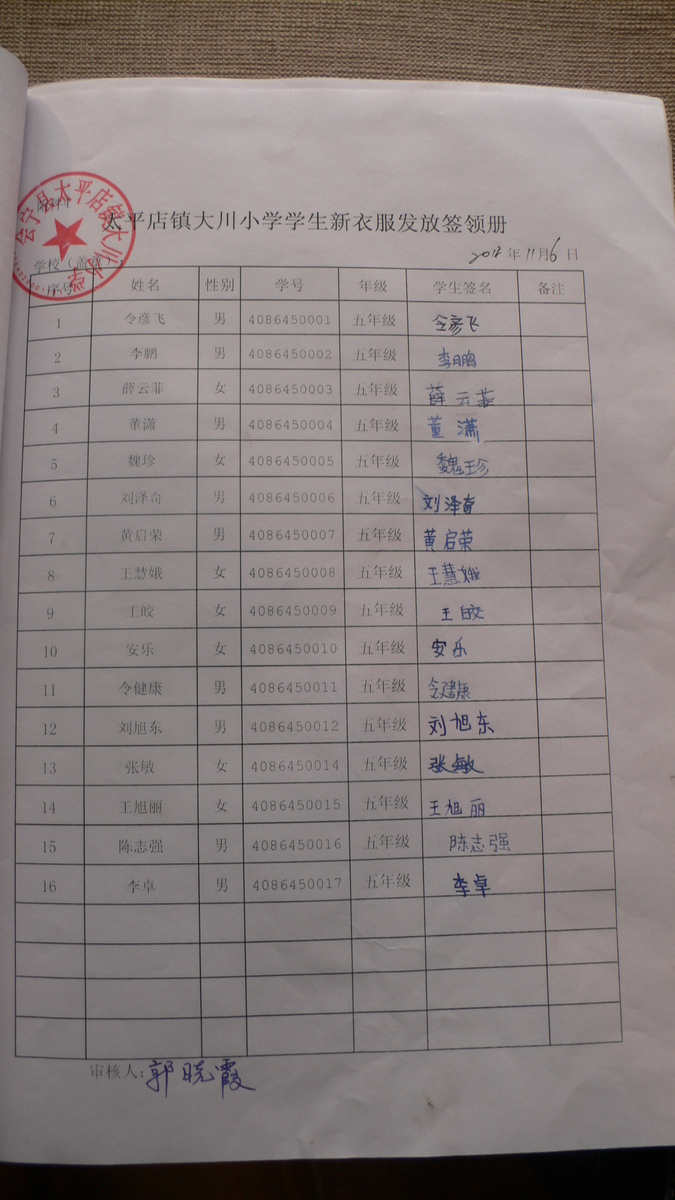 会宁县太平店镇大川小学
附件1
太平店镇大川小学学生新衣服发放签领册
学校（盖章） 2012年11月6日
序号 姓名 性别 学号 年级 学生签名 备注
1 令彦飞 男 4086450001 五年级 令彦飞
2 李鹏 男 4086450002 五年级 李鹏
3 薛云菲 女 4086450003 五年级 薛云菲
4 董潇 男 4086450004 五年级 董潇
5 魏珍 女 4086450005 五年级 魏珍
6 刘泽奇 男 4086450006 五年级 刘泽奇
7 黄启荣 男 4086450007 五年级 黄启荣
8 王慧娥 女 4086450008 五年级 王慧娥
9 王皎 女 4086450009 五年级 王皎
10 安乐 女 4086450010 五年级 安乐
11 令健康 男 4086450011 五年级 令建康
12 刘旭东 男 4086450012 五年级 刘旭东
13 张敏 女 4086450014 五年级 张敏
14 王旭丽 女 4086450015 五年级 王旭丽
15 陈志强 男 4086450016 五年级 陈志强
16 李卓 男 4086450017 五年级 李卓
审核人:郭晓霞